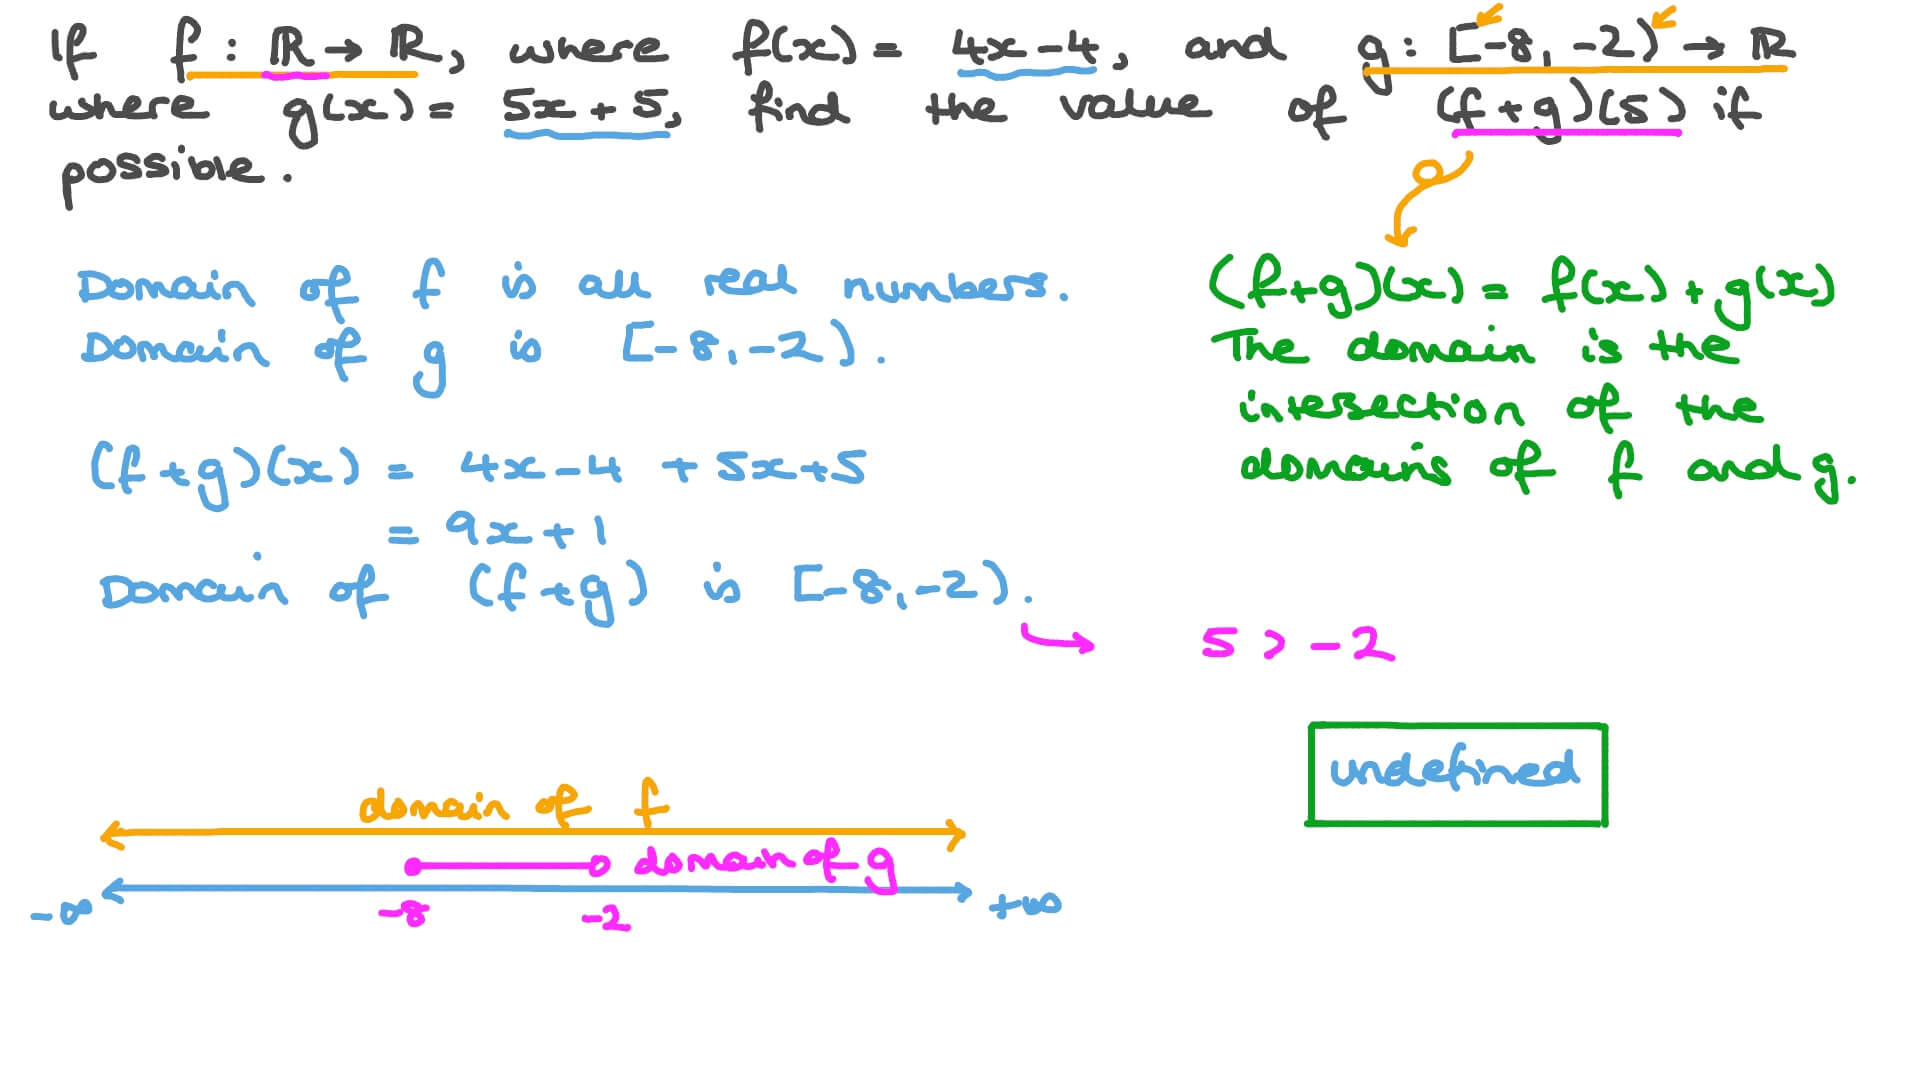 If f : ℝ → ℝ, where f(x) = 4x - 4, and g : [-8, -2) → ℝ
where g(x) = 5x + 5, find the value of (f + g)(5) if
possible.
Domain of f is all real numbers.
Domain of g is [-8, -2).
(f + g)(x) = 4x - 4 + 5x + 5
= 9x + 1
Domain of (f + g) is [-8, -2).
(f + g)(x) = f(x) + g(x)
The domain is the
intersection of the
domains of f and g.
5 > -2
undefined
domain of f
domain of g
-∞
-8
-2
+∞